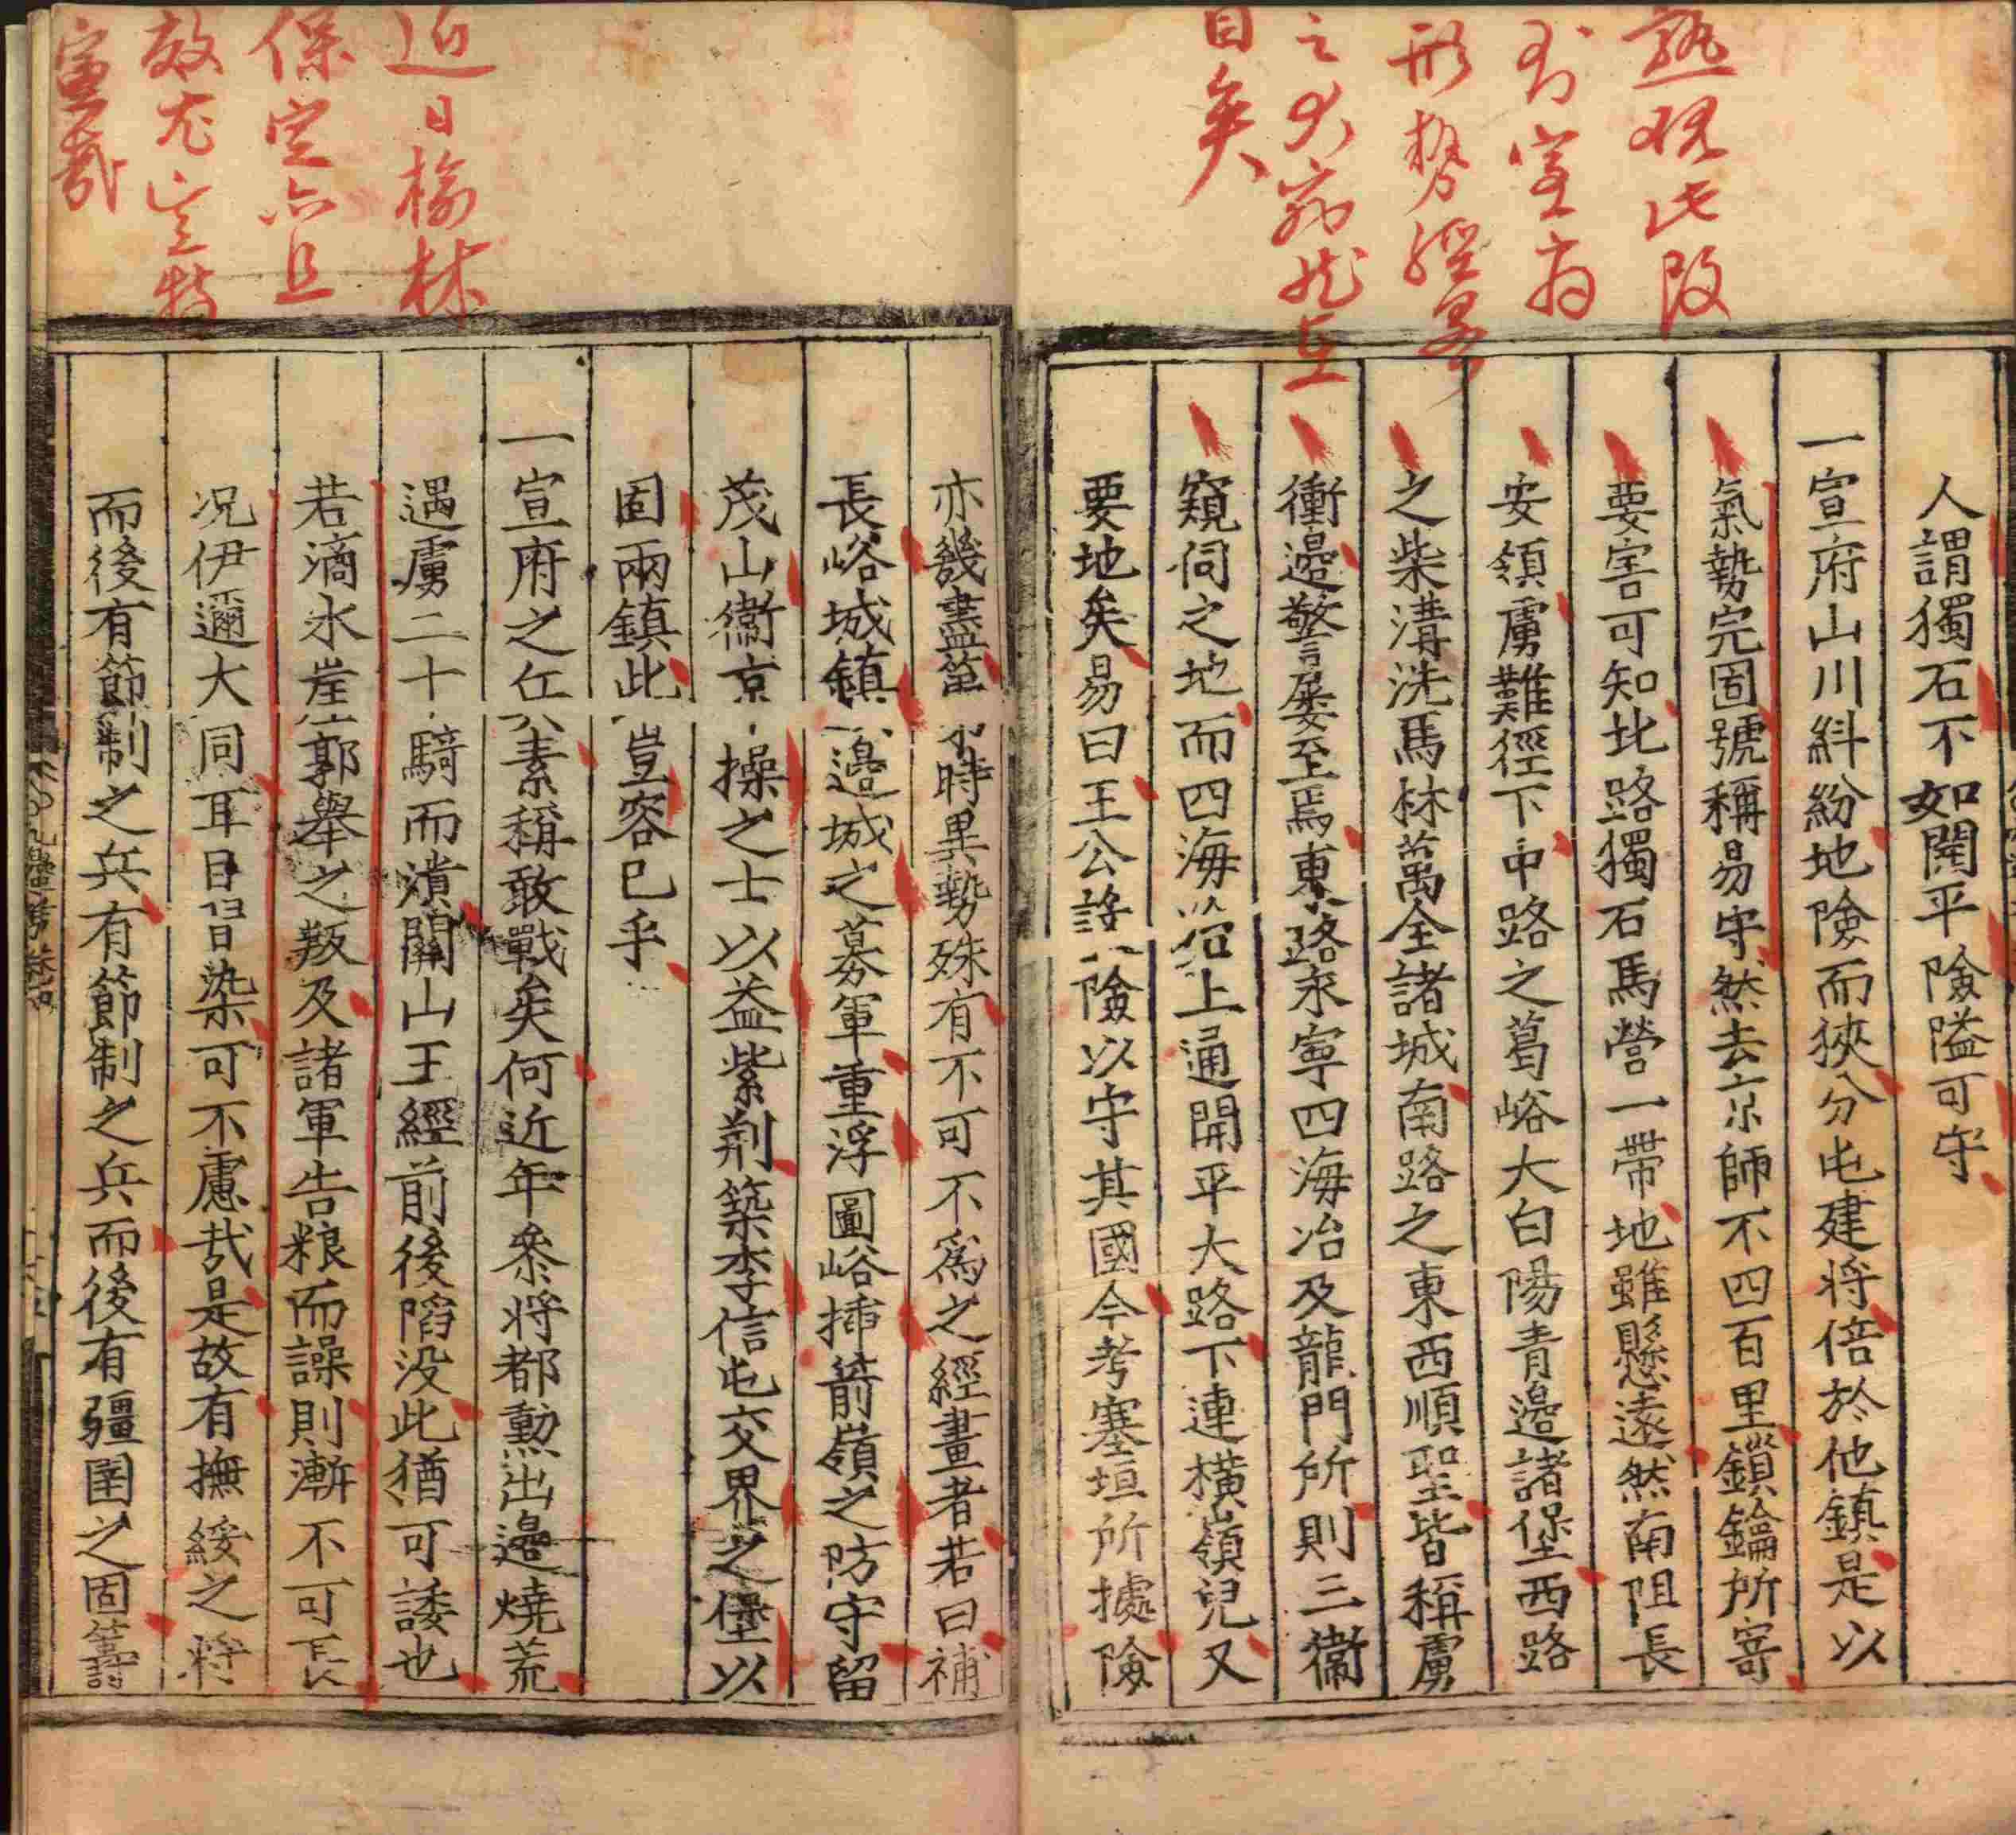 熟玩此段
形勢經畧
之大
目矣
人謂獨石不如開平險隘可守
一宣府山川糾紛地險而狹分屯建將倍於他鎮是以
氣勢完固號稱易守然去京師不四百里鎖鑰所寄
要害可知北路獨石馬營一帶地雖懸遠然南阻長
安領虜難徑下中路之葛峪大白陽青邊諸堡西路
之柴溝洗馬林萬全諸城南路之東西順聖皆稱虜
衝邊警屡至焉東路永寧四海冶及龍門所則三衞
窺伺之地而四海冶上通開平大路下連橫嶺兒又
要地矣易曰王公設險以守其國今考塞垣所據險
近日榆林
保定亦且
敉尤宜特
寘哉
亦幾盡第時異勢殊有不可不爲之經畫者若曰補
長峪城鎮邊城之募軍重浮圖峪揷箭嶺之防守留
茂山衞京操之士以益紫荆築李信屯交界之堡以
固兩鎮此豈容巳乎
一宣府之伍素稱敢戰矣何近年叅將都勲出邊燒荒
遇虜二十騎而潰關山王經前後䧟没此猶可諉也
若滴水崖郭舉之叛及諸軍告粮而譟則漸不可長
况伊邇大同耳目習染可不慮哉是故有撫綏之將
而後有節制之兵有節制之兵而後有疆圉之固籌